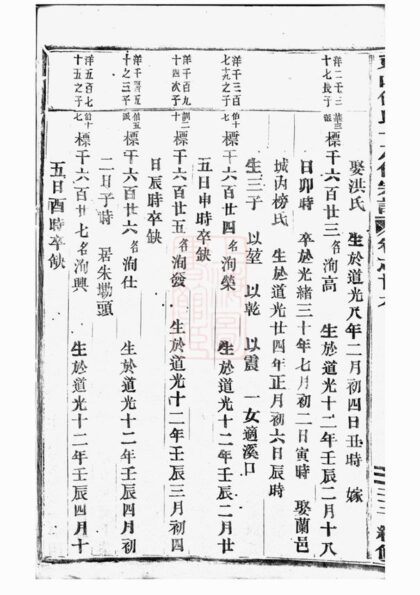 娶洪氏 生於道光八年二月初四日丑時 嫁
洋千二千三十七長子 標千六百廿三 名洵高 生於道光十二年壬辰二月十八
日卯時 卒於光緒三十年七月初二日寅時 娶蘭邑
城內榜氏 生於道光廿四年正月初六日辰時
生三子 以堃 以乾 以震 一女適溪口
洋千三百七十九之子 標千六百廿四 名洵榮 生於道光十二年壬辰二月廿
五日申時卒缺
洋千百九十四次子 標千六百廿五 名洵發 生於道光十二年壬辰三月初四
日辰時卒缺
之子 標千六百廿六 名洵仕 生於道光十二年壬辰四月初
二日子時 居朱塘頭
洋五百七十五之子 標千六百廿七 名洵興 生於道光十二年壬辰四月十
五日酉時卒缺